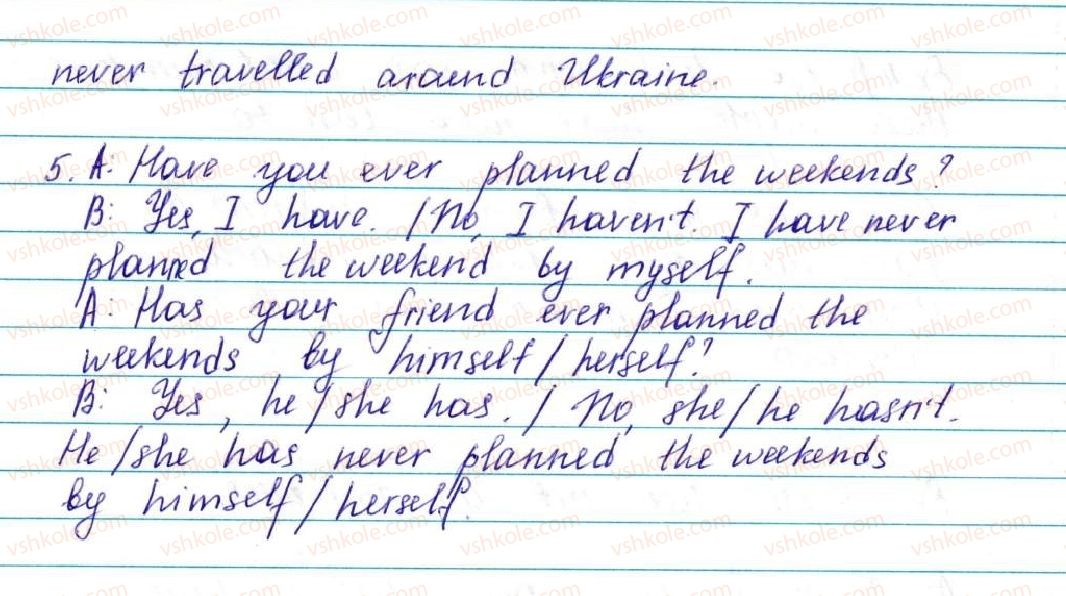 never travelled around Ukraine.
5. A: Have you ever planned the weekends?
B: Yes, I have. / No, I haven't. I have never
planned the weekend by myself.
A: Has your friend ever planned the
weekends by himself / herself?
B: Yes, he / she has. / No, she / he hasn't.
He / she has never planned the weekends
by himself / herself.